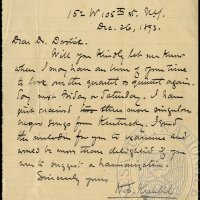 152 W 105th St. N.Y.
Dec. 26, 1893.
Dear Dr. Dvořák.
Will you kindly let me know
when I may have an hour of your time
to look on the quartet & quintet again.
Any most Friday or Saturday. I have
just received three more singular
negro songs from Kentucky. I send
the melodies for you to examine and
would be more than delighted if you
care to suggest a harmonization.
Sincerely yours
H. E. Krehbiel